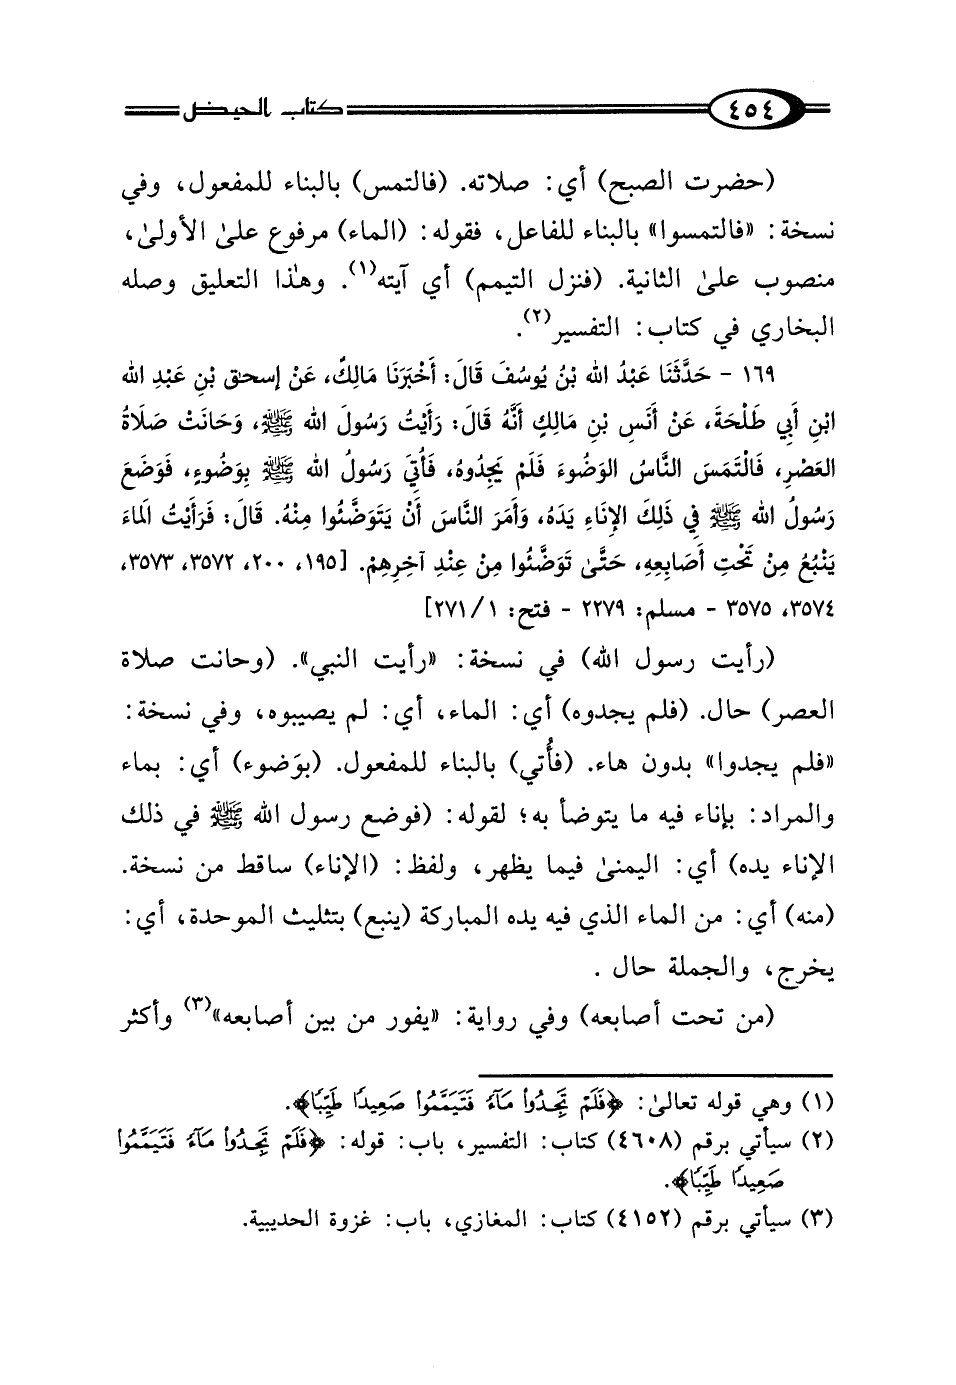 ٤٥٤ كتاب الحيض
(حضرت الصبح) أي: صلاته. (فالتمس) بالبناء للمفعول، وفي
نسخة: «فالتمسوا» بالبناء للفاعل، فقوله: (الماء) مرفوع علىٰ الأولىٰ،
منصوب علىٰ الثانية. (فنزل التيمم) أي آيته(١). وهٰذا التعليق وصله
البخاري في كتاب: التفسير(٢).
١٦٩ - حَدَّثَنَا عَبْدُ الله بْنُ يُوسُفَ قَالَ: أَخْبَرَنَا مَالِكٌ، عَنْ إسحٰق بْنِ عَبْدِ الله
ابْنِ أَبِي طَلْحَةَ، عَنْ أَنَسِ بْنِ مَالِكٍ أَنَّهُ قَالَ: رَأَيْتُ رَسُولَ الله ﷺ، وَحَانَتْ صَلَاةُ
العَصْرِ، فَالْتَمَسَ النَّاسُ الوَضُوءَ فَلَمْ يَجِدُوهُ، فَأُتِيَ رَسُولُ الله ﷺ بِوَضُوءٍ، فَوَضَعَ
رَسُولُ الله ﷺ فِي ذَلِكَ الإِنَاءِ يَدَهُ، وَأَمَرَ النَّاسَ أَنْ يَتَوَضَّئُوا مِنْهُ. قَالَ: فَرَأَيْتُ المَاءَ
يَنْبُعُ مِنْ تَحْتِ أَصَابِعِهِ، حَتَّىٰ تَوَضَّئُوا مِنْ عِنْدِ آخِرِهِمْ. [١٩٥، ٢٠٠، ٣٥٧٢، ٣٥٧٣،
٣٥٧٤، ٣٥٧٥ - مسلم: ٢٢٧٩ - فتح: ١/ ٢٧١]
(رأيت رسول الله) في نسخة: «رأيت النبي». (وحانت صلاة
العصر) حال. (فلم يجدوه) أي: الماء، أي: لم يصيبوه، وفي نسخة:
«فلم يجدوا» بدون هاء. (فأُتي) بالبناء للمفعول. (بوَضوء) أي: بماء
والمراد: بإناء فيه ما يتوضأ به؛ لقوله: (فوضع رسول الله ﷺ في ذلك
الإناء يده) أي: اليمنىٰ فيما يظهر، ولفظ: (الإناء) ساقط من نسخة.
(منه) أي: من الماء الذي فيه يده المباركة (ينبع) بتثليث الموحدة، أي:
يخرج، والجملة حال .
(من تحت أصابعه) وفي رواية: «يفور من بين أصابعه»(٣) وأكثر
(١) وهي قوله تعالىٰ: ﴿فَلَمْ تَجِدُوا۟ مَآءً فَتَيَمَّمُوا۟ صَعِيدًا طَيِّبًا﴾.
(٢) سيأتي برقم (٤٦٠٨) كتاب: التفسير، باب: قوله: ﴿فَلَمْ تَجِدُوا۟ مَآءً فَتَيَمَّمُوا۟
صَعِيدًا طَيِّبًا﴾.
(٣) سيأتي برقم (٤١٥٢) كتاب: المغازي، باب: غزوة الحديبية.